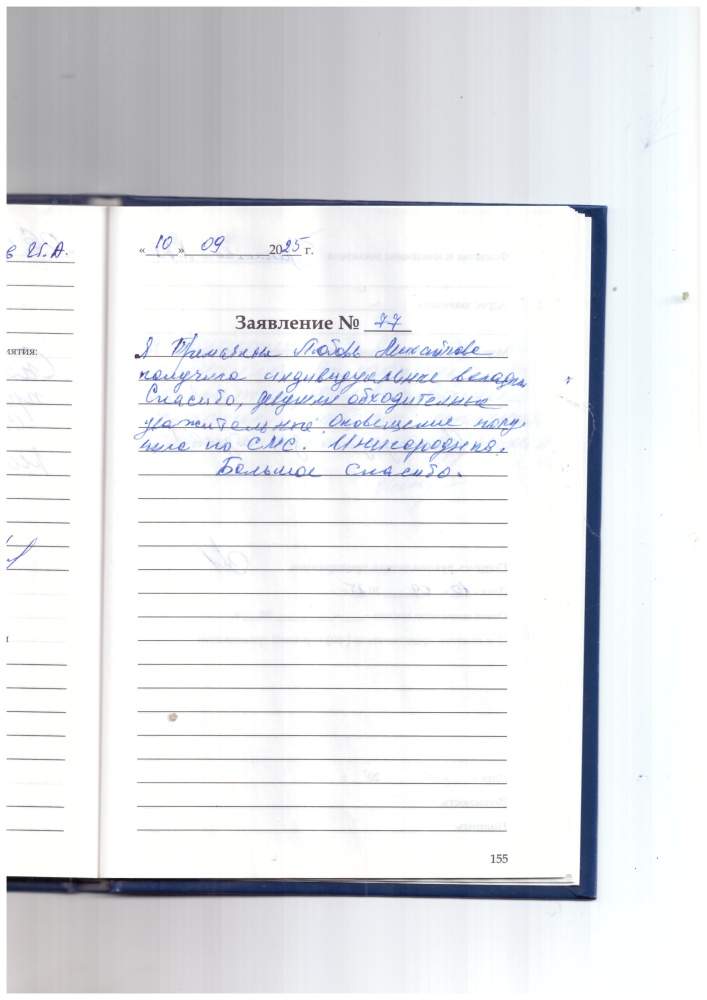 в И.А.
« 10 » 09 2025 г.
Заявление № 77
Я Любовь Михайловна
иятия:
получила индивидуальные вкладки
Спасибо, девушки обходительные
уважительные. Оповещение полу-
чила по СМС. Иногородняя.
Большое спасибо.
155